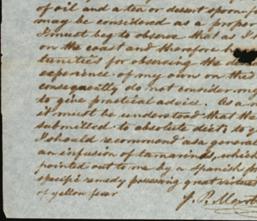 of oil and a tea or desert spoon f
may be considered as a proper
I must beg to observe that as I
on the coast and therefore ha
tunities for observing the de
experience of my own on the
consequently do not consider my
to give practical advice. As a
it must be understood that the
submitted to absolute dicts to y
I should recommend as a general
an infusion of tamarinds, which
pointed out to me by a Spanish
specific remedy possessing great virtues
of yellow fever